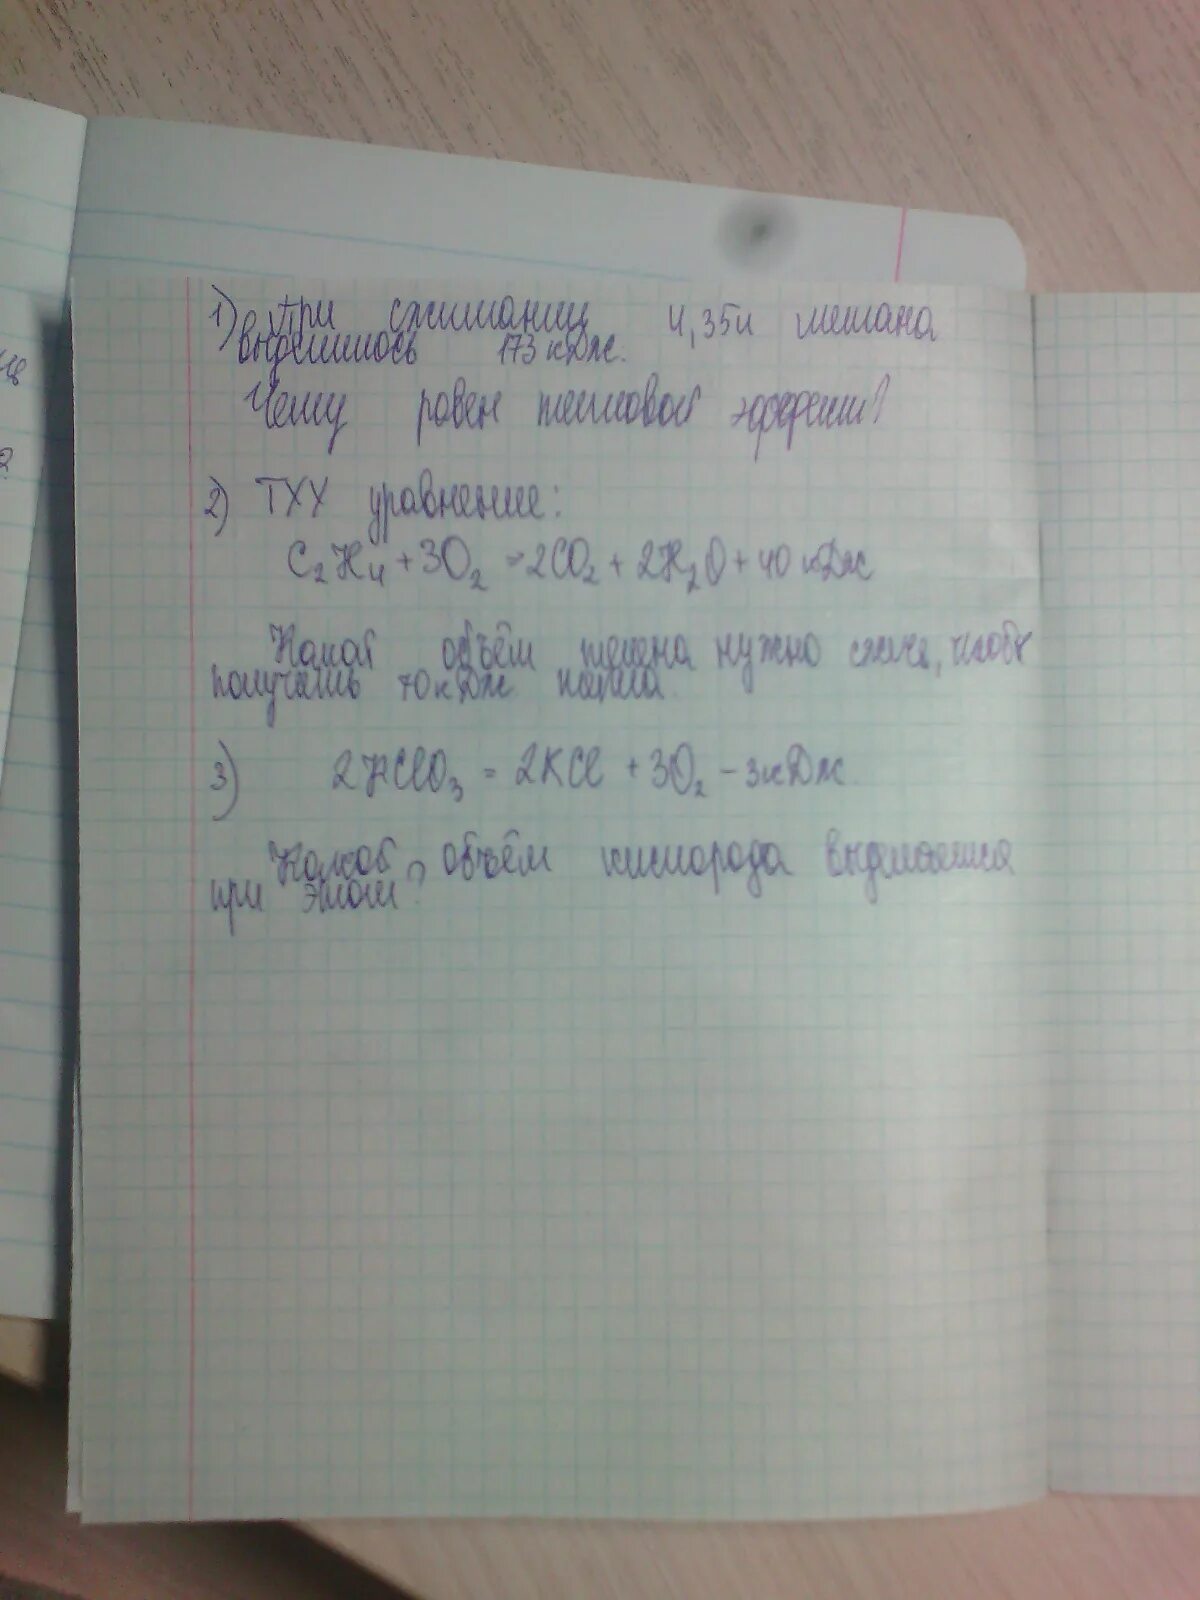 1) При сжигании 4,35л метана
выделилось 173 кДж.
Чему равен тепловой эффект?
2) ТХУ уравнение:
C₂H₄ + 3O₂ = 2CO₂ + 2H₂O + 40 кДж
Какой объём этилена нужно сжечь, чтобы
получить 70 кДж тепла.
3) 2KClO₃ = 2KCl + 3O₂ - 3кДж.
Какой объём кислорода выделяется
при этом?